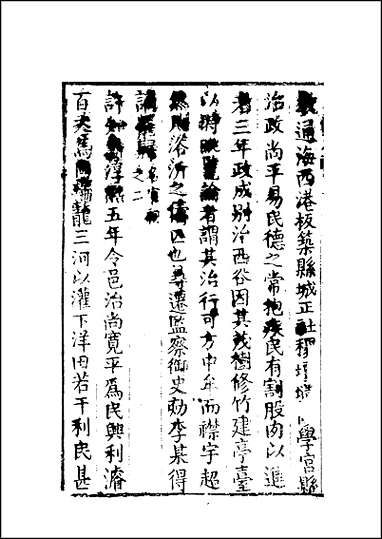 通海西港板築縣城正社稷壇學宮縣
治政尚平易民德之常抱疾民有割股肉以進
者三年政成別治西谷因其茂樹修竹建亭臺
以時論者謂其治行可方中牟而襟宇超
然則浴沂之儔匹也尋遷監察御史劾李某得
許淳熙五年令邑治尚寬平為民興利濬
百丈馬龍三河以灌下洋田若干利民甚